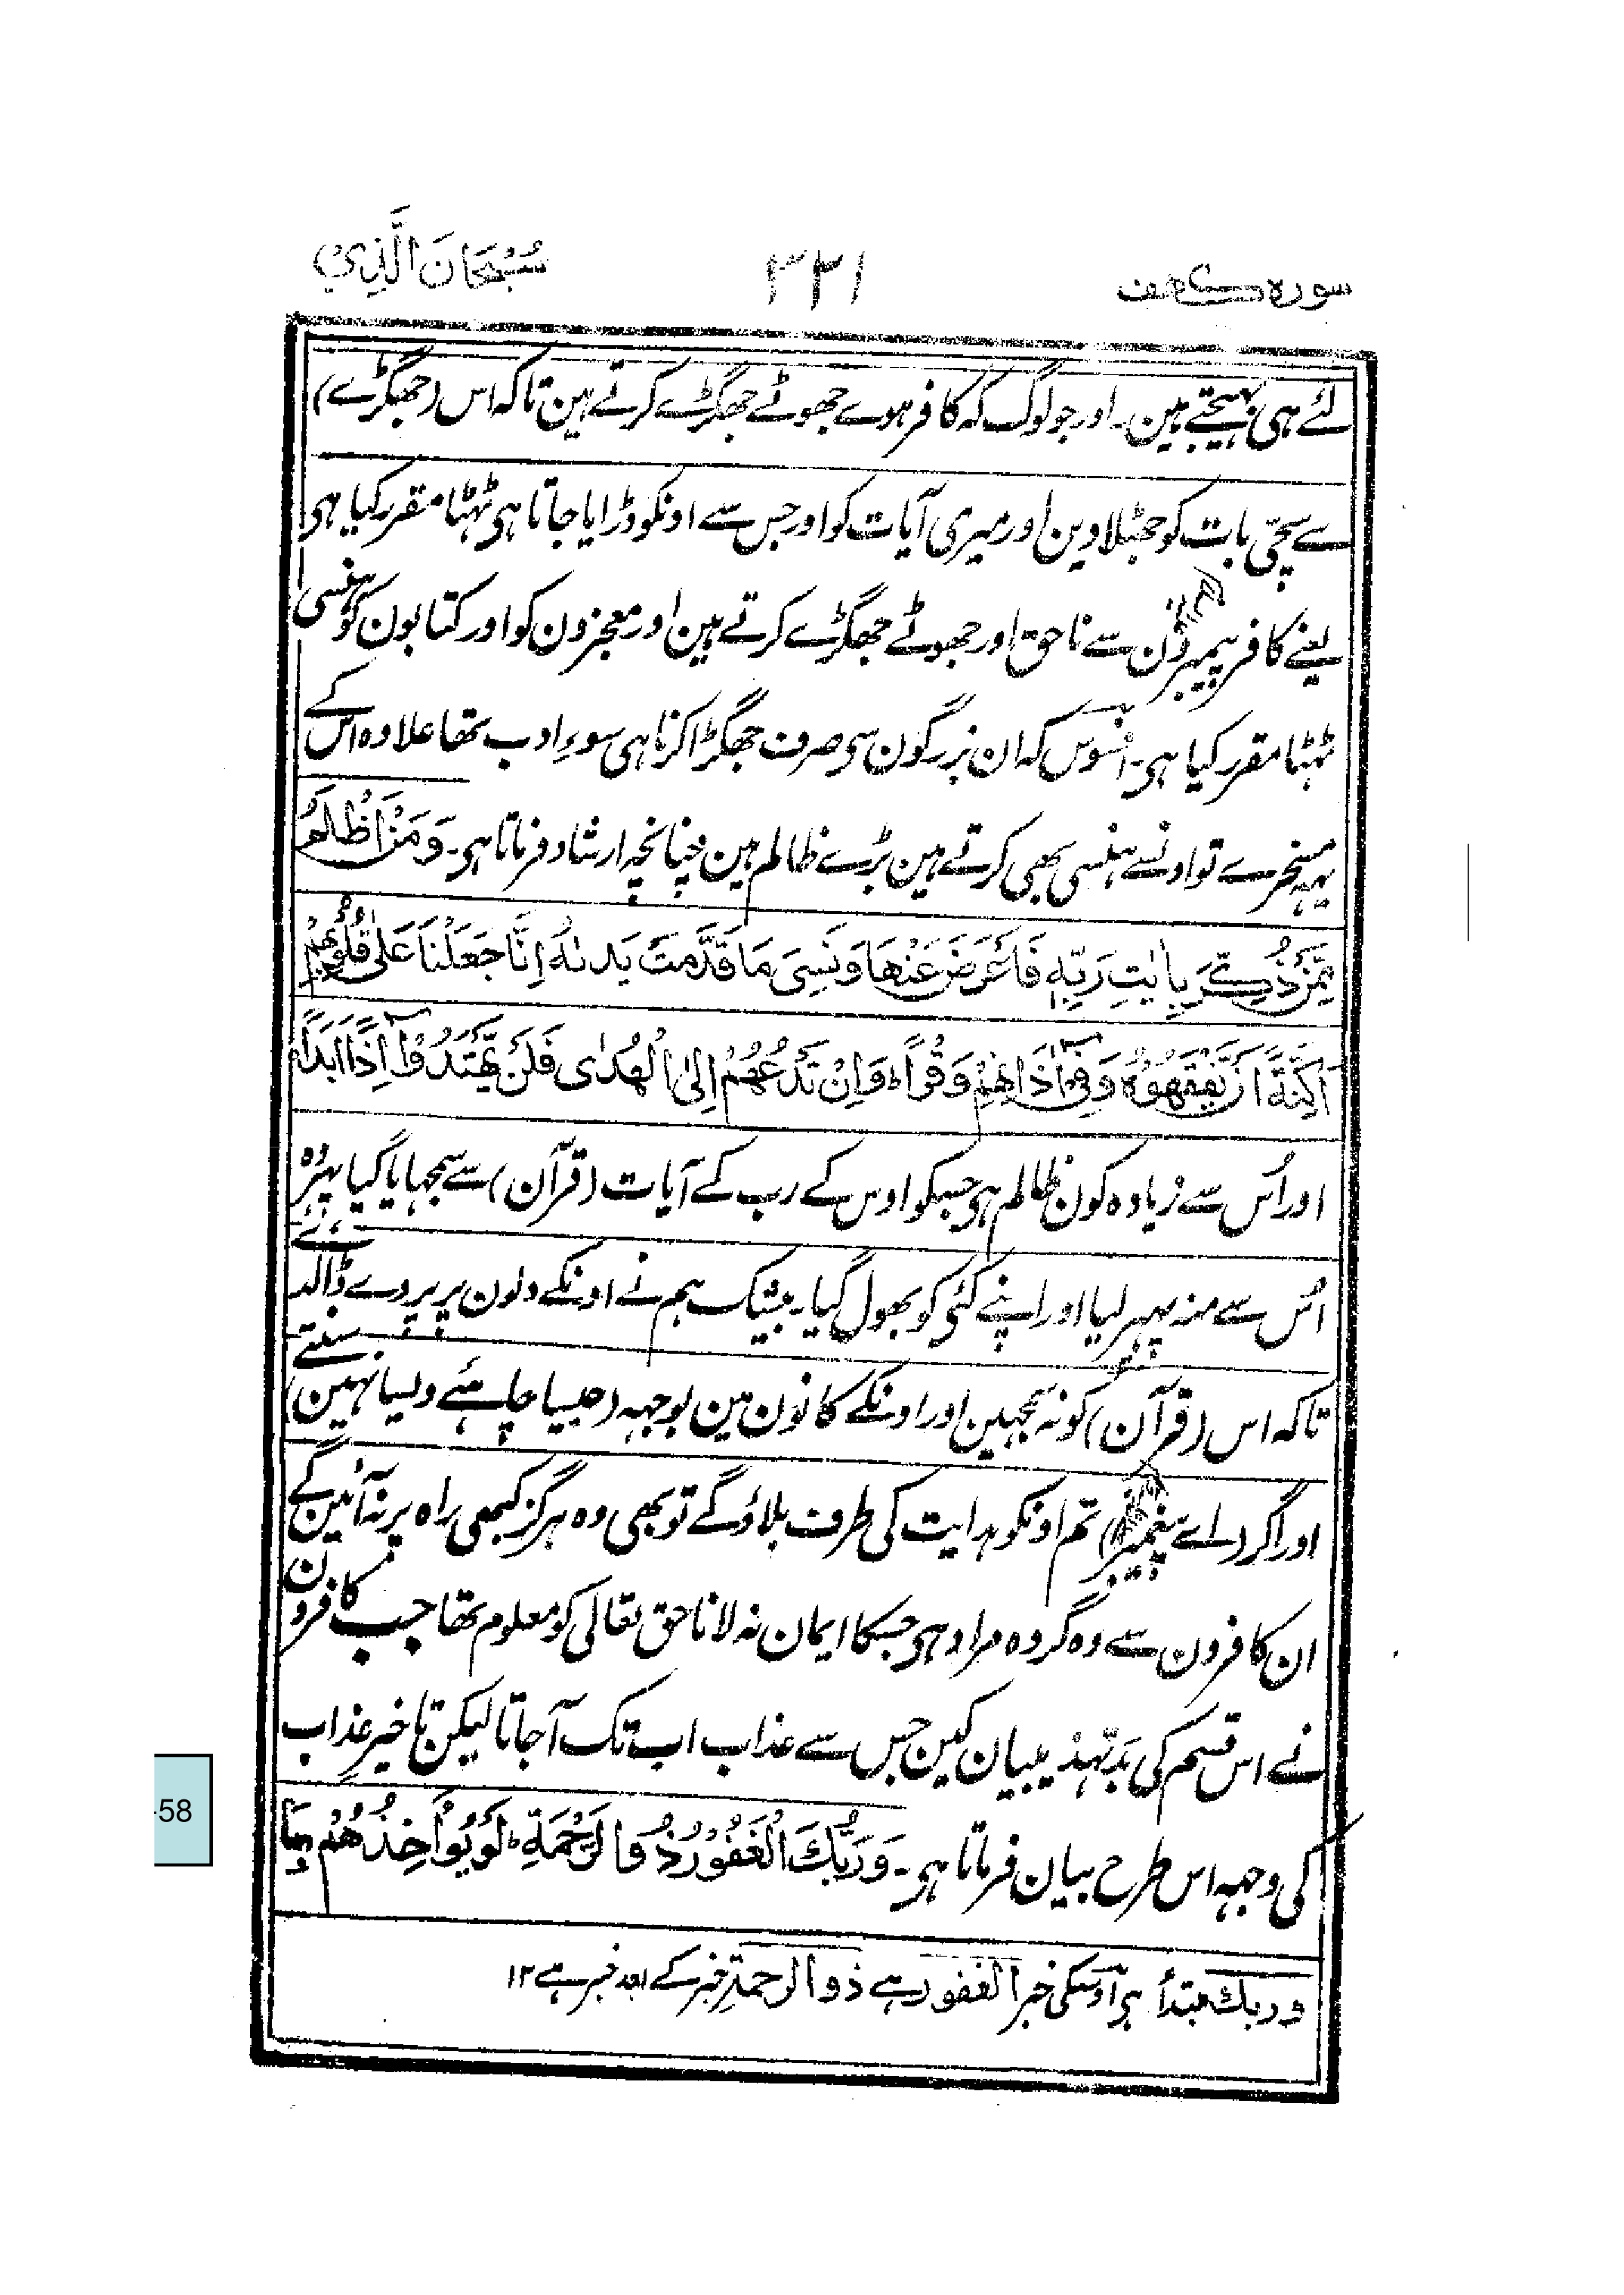 سورہ کہف
۳۳۱
سُبْحَانَ الَّذِيْ
لئے ہی بہیجتے ہین۔ اور جو لوگ کہ کافر ہوے جھوٹے جھگڑے کرتے ہین تاکہ اس (جھگڑے)
سے سچّی بات کو جھٹلا وین اور میری آیات کو اور جس سے اونکو ڈرایا جاتا ہی ٹہٹا مقرر کیا ہی
یعنے کافر پیمبرون سے ناحق اور جھوٹے جھگڑے کرتے ہین اور معجزون کو اور کتابون کو ہنسی
ٹہٹا مقرر کیا ہی۔ افسوس کہ ان بزرگون سی صرف جھگڑا کرنا ہی سوءِ ادب تھا علاوہ اس کے
یہہ مسخرے تو اونسے ہنسی بھی کرتے ہین بڑے ظالم ہین چنانچہ ارشاد فرماتا ہی۔ وَمَنْ اَظْلَمُ
مِمَّنْ ذُكِّرَ بِاٰيٰتِ رَبِّهٖ فَاَعْرَضَ عَنْهَا وَنَسِیَ مَا قَدَّمَتْ يَدٰىهُ اِنَّا جَعَلْنَا عَلٰى قُلُوْبِهِمْ
اَكِنَّةً اَنْ يَّفْقَهُوْهُ وَفِيْٓ اٰذَانِهِمْ وَقْرًا ؕ وَاِنْ تَدْعُهُمْ اِلَى الْهُدٰى فَلَنْ يَّهْتَدُوْٓا اِذًا اَبَدًا
اور اُس سے زیادہ کون ظالم ہی جسکو اوس کے رب کے آیات (قرآن) سے سمجہایا گیا پہر وہ
اُس سے منہ پہیر لیا اور اپنے کئی کو بھول گیا۔ بیشک ہم نے اونکے دلون پر پردے ڈالدئے
تاکہ اس (قرآن) کو نہ سمجہین اور اونکے کانون مین بوجہہ (جیسا چاہئے ویسا نہین سنتے)
اور اگر (اے پیغمبر) تم اونکو ہدایت کی طرف بلاؤگے تو بھی وہ ہرگز کبھی راہ پر نہ آئین گے
ان کافرون سے وہ گروہ مراد ہی جسکا ایمان نہ لانا حق تعالی کو معلوم تھا جب کافرون
نے اس قسم کی بدتہذیبیان کین جس سے عذاب اب تک آجاتا لیکن تاخیر عذاب
کی وجہہ اس طرح بیان فرماتا ہی۔ وَرَبُّكَ الْغَفُوْرُ ذُو الرَّحْمَةِ ؕ لَوْ يُؤَاخِذُهُمْ بِمَا
وربك مبتدأ ہی اوسکی خبر الغفور ہے ذو الرحمۃ خبر کے بعد خبر ہے ۱۲
-58